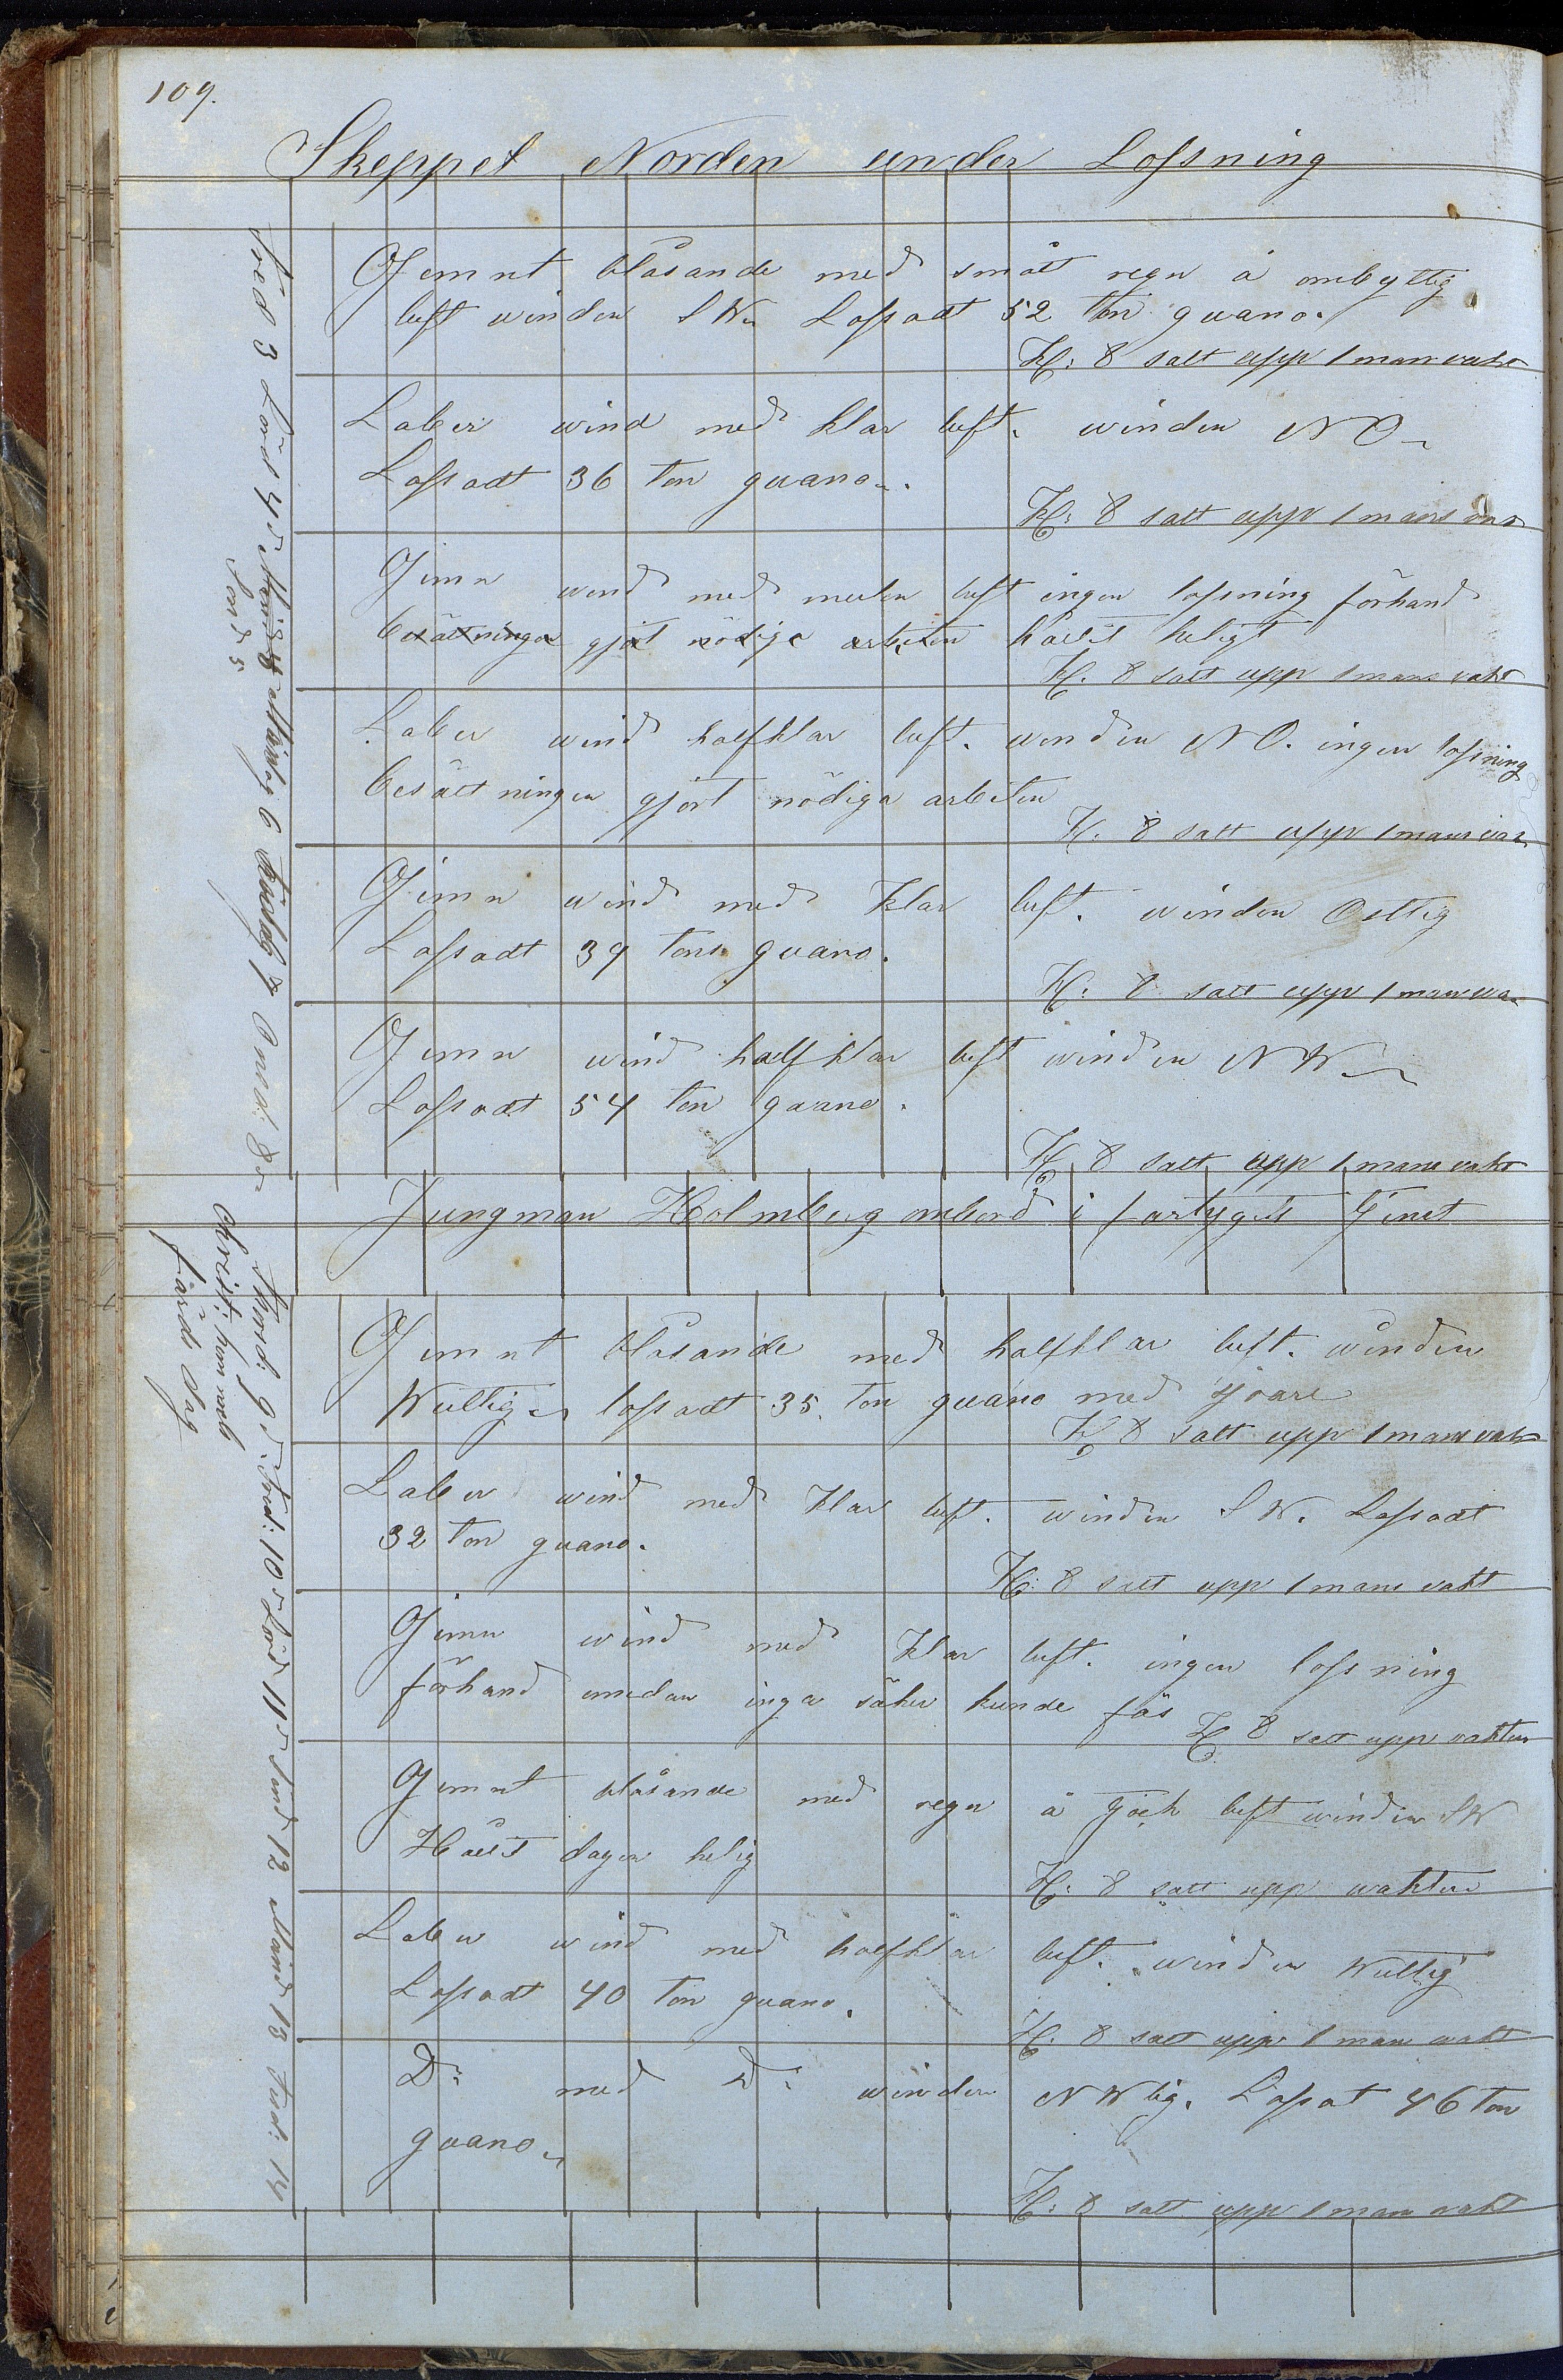 109.
Skeppet Norden under Lossning
Fred 3 Lörd 4 Månd 6 Tisdag 7 Onsd: 8
Sönd 5
Jemnt blåsande med smått regn å ombyttlig
luft winden SW Lossadt 52 ton guano.
Kl: 8 satt upp 1 man vakt
Laber wind med klar luft. winden NO
Lossadt 36 ton guano.
Kl: 8 satt upp 1 mans
Jemn wind med mulen luft ingen lossning förhand
besättningen gjöt nödige arbeten hållit heligt
Kl. 8 satt upp 1 mans vakt
Laber wind halfklar luft. winden NO. ingen lossning
besättningen gjort nödiga arbeten
Kl. 8 satt upp 1 mans
Jemn wind med Klar luft. winden Ostlig
Lossadt 39 tons guano.
Kl: 8 satt upp 1 man
Jemn wind halfklar luft winden NW
Lossadt 54 ton guano.
Kl 8 satt upp 1 mans vakt
Jungman Holmberg ombord i fartygets Tjenst
Thord: 9 Fred: 10 Lörd 11 Sönd 12 Månd 13 Tisd: 14
Christi himmels
färds dag
Jemnt blåsande med halfklar luft. winden
Westlig lossadt 35. ton guano med
Kl 8 satt upp 1 mans vakt
Laber wind med klar luft. winden SW. Lossadt
32 ton guano.
Kl: 8 satt upp 1 mans vakt
Jemn wind med Klar luft. ingen lossning
förhand emedan inga säker kunde fås
Kl 8 satt upp vakten
Jemnt blåsande med regn å tjock luft winden SW
Hållit dagen helig
Kl: 8 satt upp wakten
Laber wind med halfklar luft. winden Westlig
Lossadt 40 ton guano.
Kl. 8 satt upp 1 man wakt
Do: med Do: winden NWlig. Lossat 46 ton
guano
Kl: 8 satt upp 1 man vakt